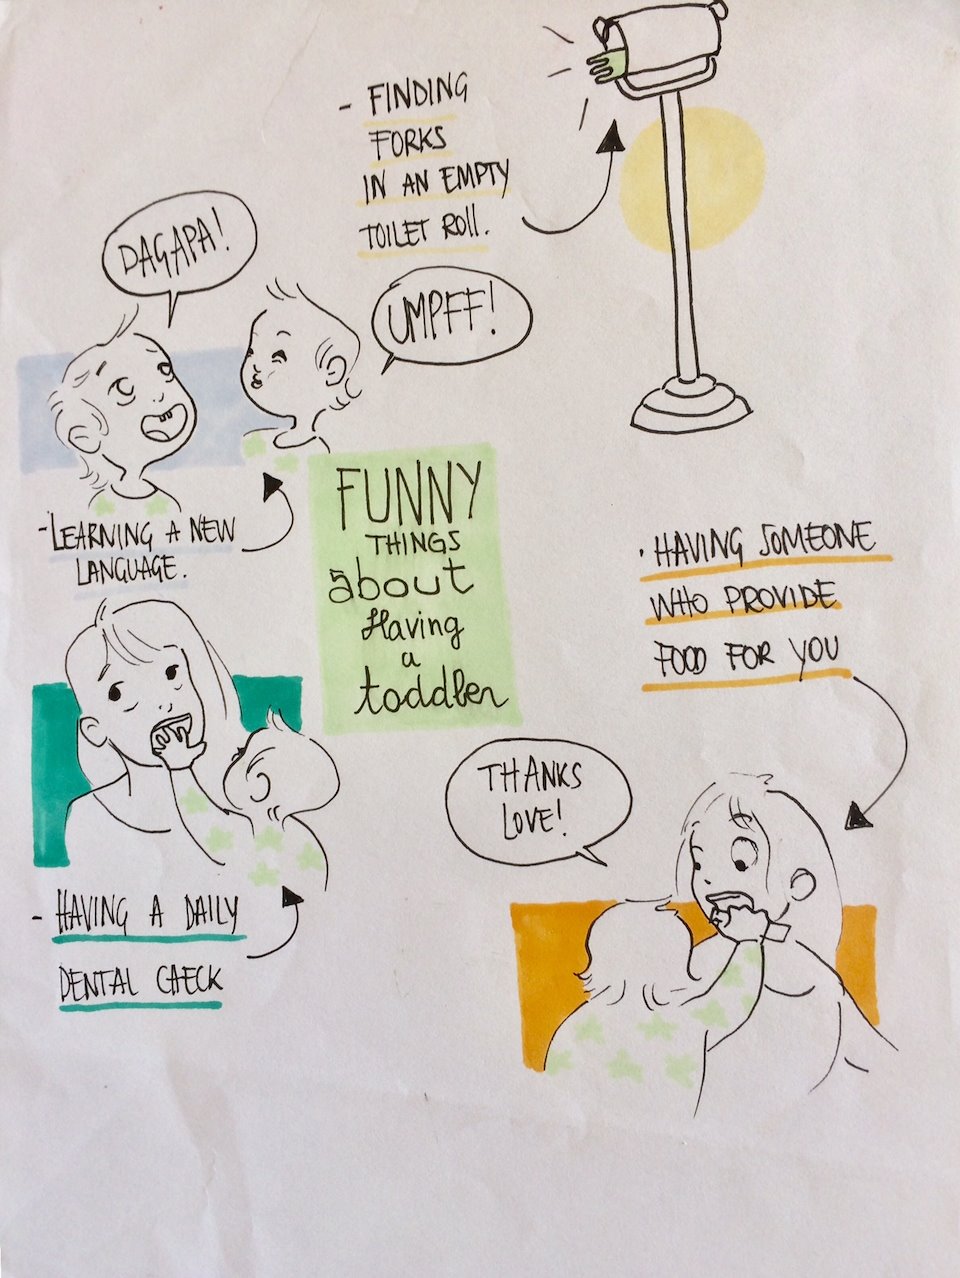 - FINDING
FORKS
IN AN EMPTY
TOILET ROLL.
DAGAPA!
UMPFF!
- LEARNING A NEW
LANGUAGE.
FUNNY
THINGS
about
Having
a
toddler
· HAVING SOMEONE
WHO PROVIDE
FOOD FOR YOU
THANKS
LOVE!
- HAVING A DAILY
DENTAL CHECK